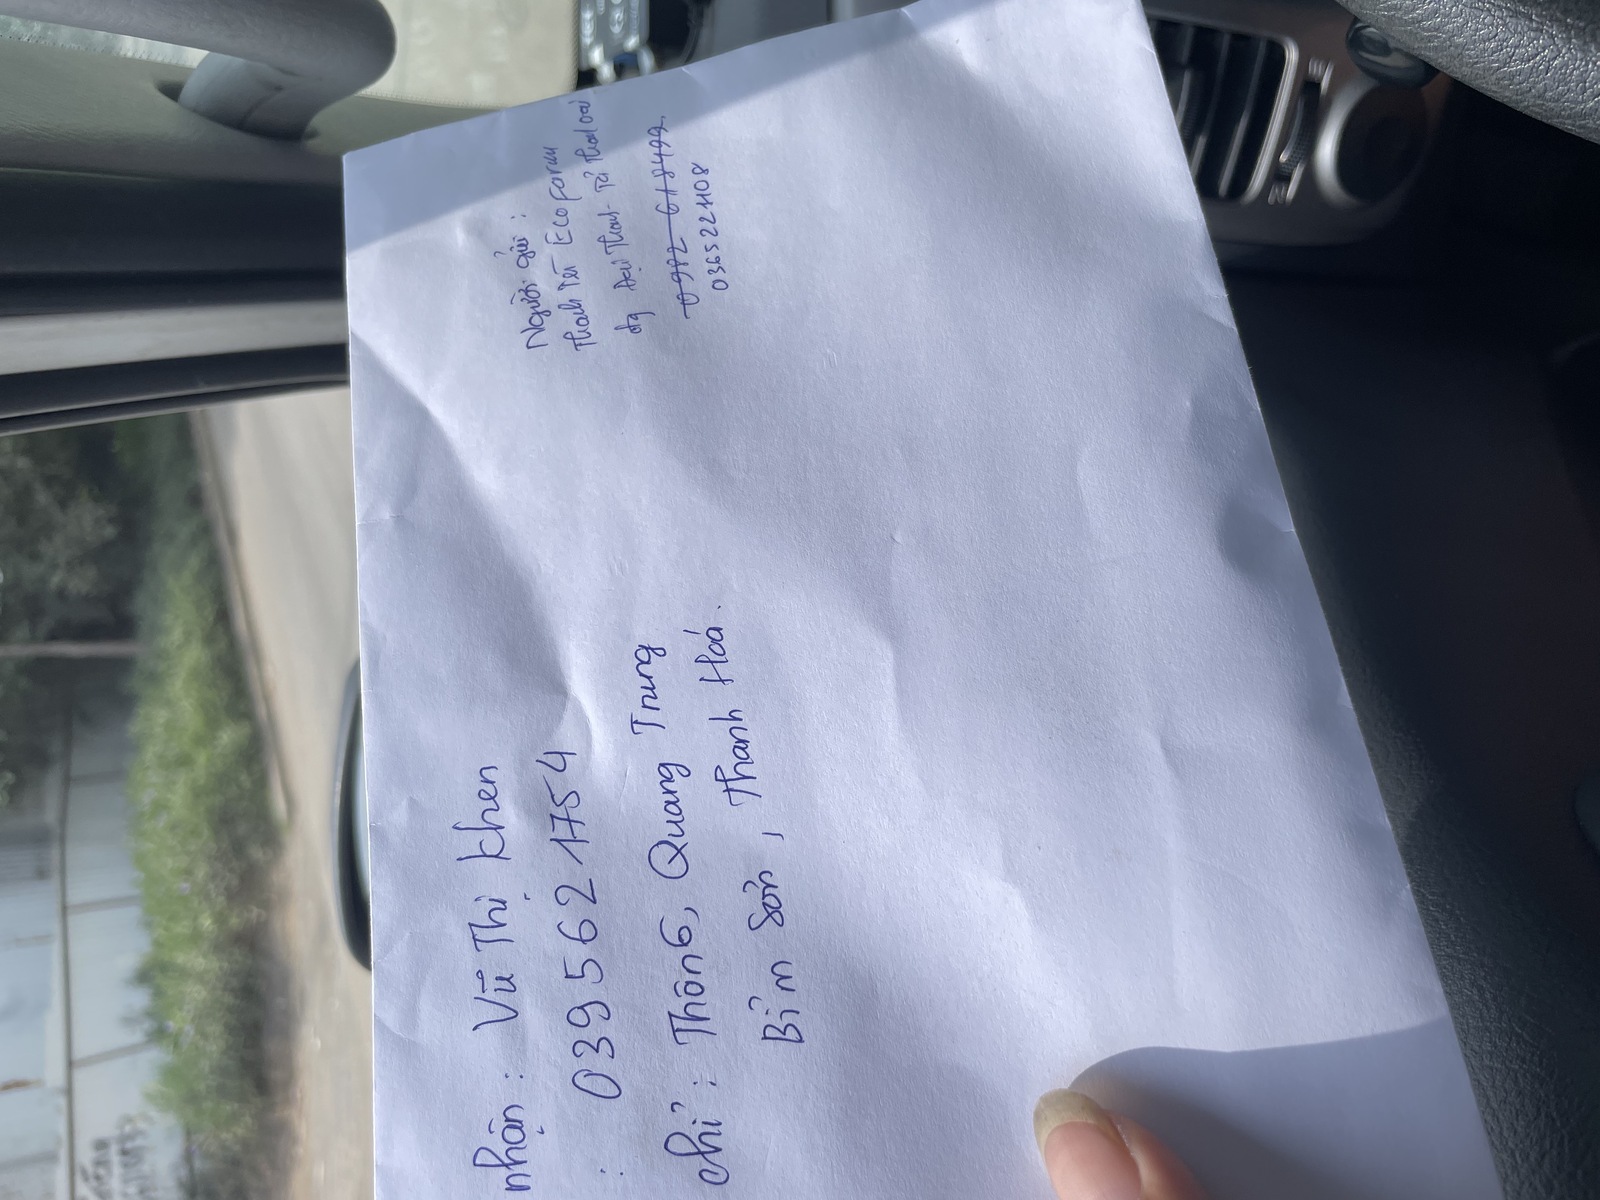 Người gửi:
Thanh Tết Ecofarm
đg Đại Thanh - Tả Thanh Oai
0982 618499.
0365221108
nhận: Vũ Thị Khen
: 0395621754
chỉ: Thôn 6, Quang Trung
Bỉm Sơn, Thanh Hoá.